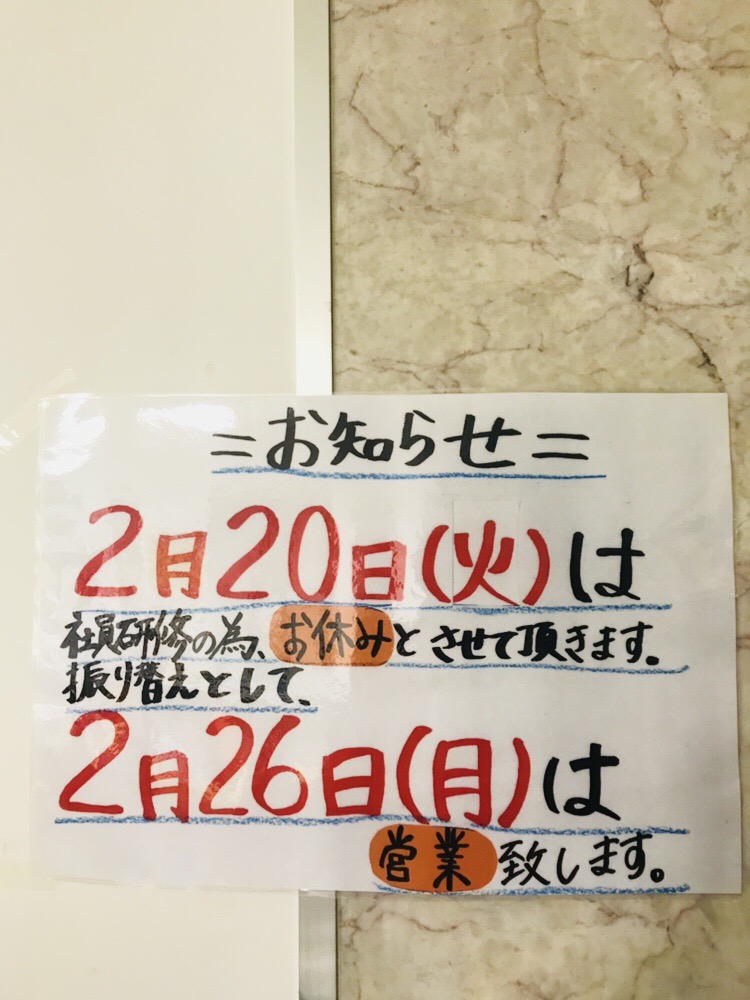 =お知らせ=
2月20日(火)は
社員研修の為、お休みとさせて頂きます。
振り替えとして、
2月26日(月)は
営業致します。